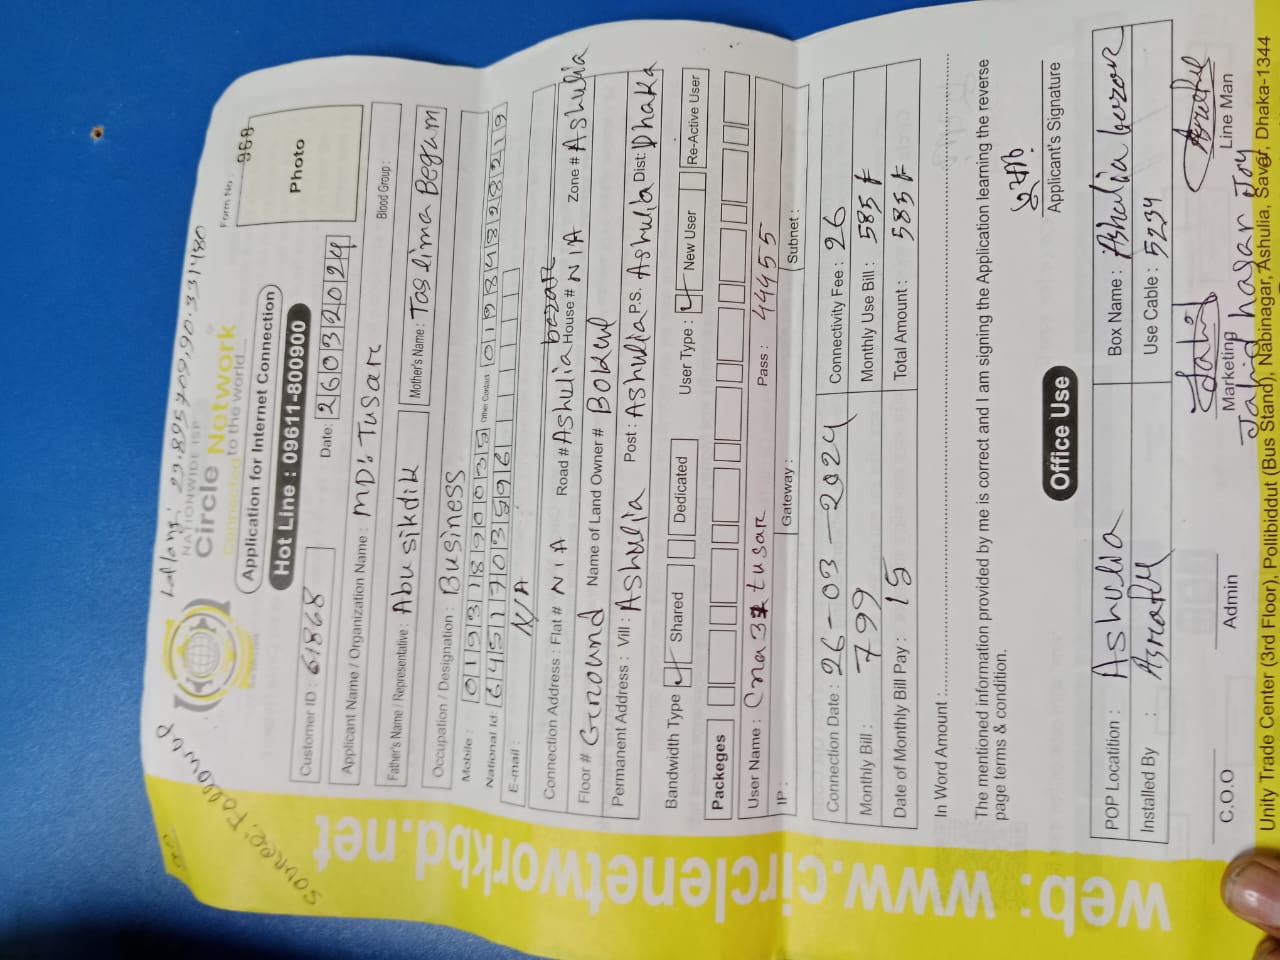 Source: Follow up
Lat lang: 23.895709,90.331480
NATIONWIDE ISP
Circle Network
Connected to the world....
Form No : 968
Application for Internet Connection
Hot Line : 09611-800900
Photo
Customer ID : 61868 Date: 26032024
Applicant Name / Organization Name : MD: Tusar
Blood Group :
Father's Name / Representative : Abu sikdir Mother's Name : Taslima Begum
Occupation / Designation : Business
Mobile : 01931890035 Other Contact 01984828219
National Id: 6451703596
E-mail : N/A
Connection Address : Flat # N/A Road # Ashulia bazar House # N/A Zone # Ashulia
Floor # Ground Name of Land Owner # Bokul
Permanent Address : Vill : Ashulia Post : Ashulia P.S. Ashulia Dist: Dhaka
Bandwidth Type Shared Dedicated User Type : New User Re-Active User
Packeges
User Name : cna3 tusar Pass : 44455
IP : Gateway : Subnet :
Connection Date : 26-03-2024 Connectivity Fee : 26
Monthly Bill : 799 Monthly Use Bill : 585 ৳
Date of Monthly Bill Pay : 15 Total Amount : 585 ৳
In Word Amount :
The mentioned information provided by me is correct and I am signing the Application learning the reverse
page terms & condition.
তুষার
Applicant's Signature
Office Use
POP Locatition : Ashulia Box Name : Ashulia bazar
Installed By : Use Cable : 5234
Jahid
C.O.O Admin Marketing Line Man
Jahid hasan Joy
Unity Trade Center (3rd Floor), Pollibiddut (Bus Stand), Nabinagar, Ashulia, Savar, Dhaka-1344
web: www.circlenetworkbd.net